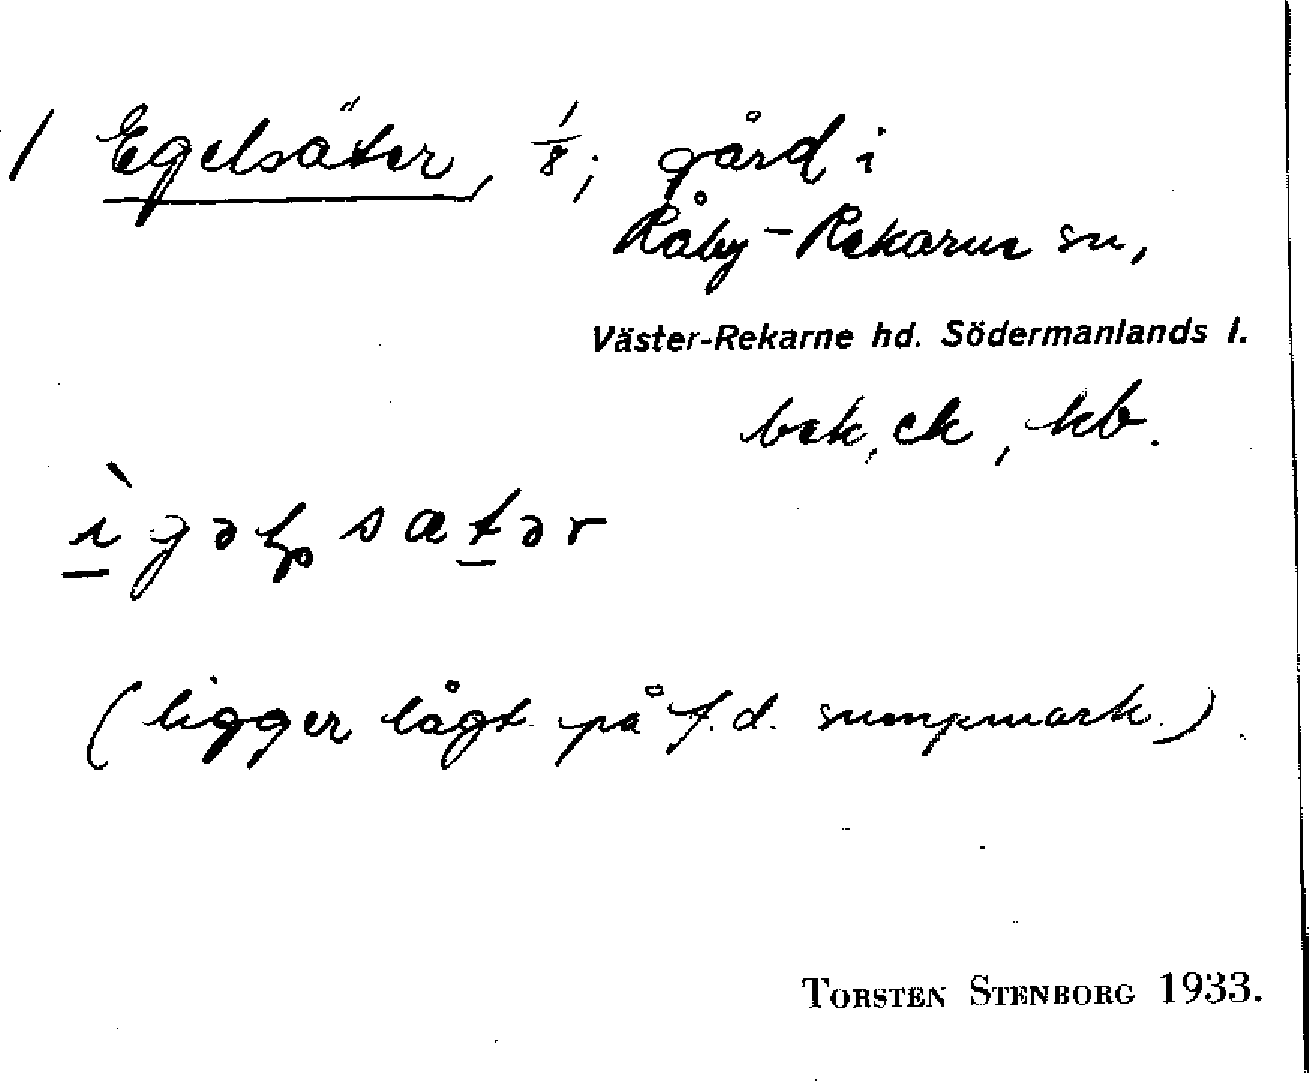 / Egelsäter, 1/8; gård i
Råby-Rekarne sn,
Väster-Rekarne hd. Södermanlands l.
bek, ek, kb.
ìgəlsætər
(ligger lågt på f.d. sumpmark.).
TORSTEN STENBORG 1933.